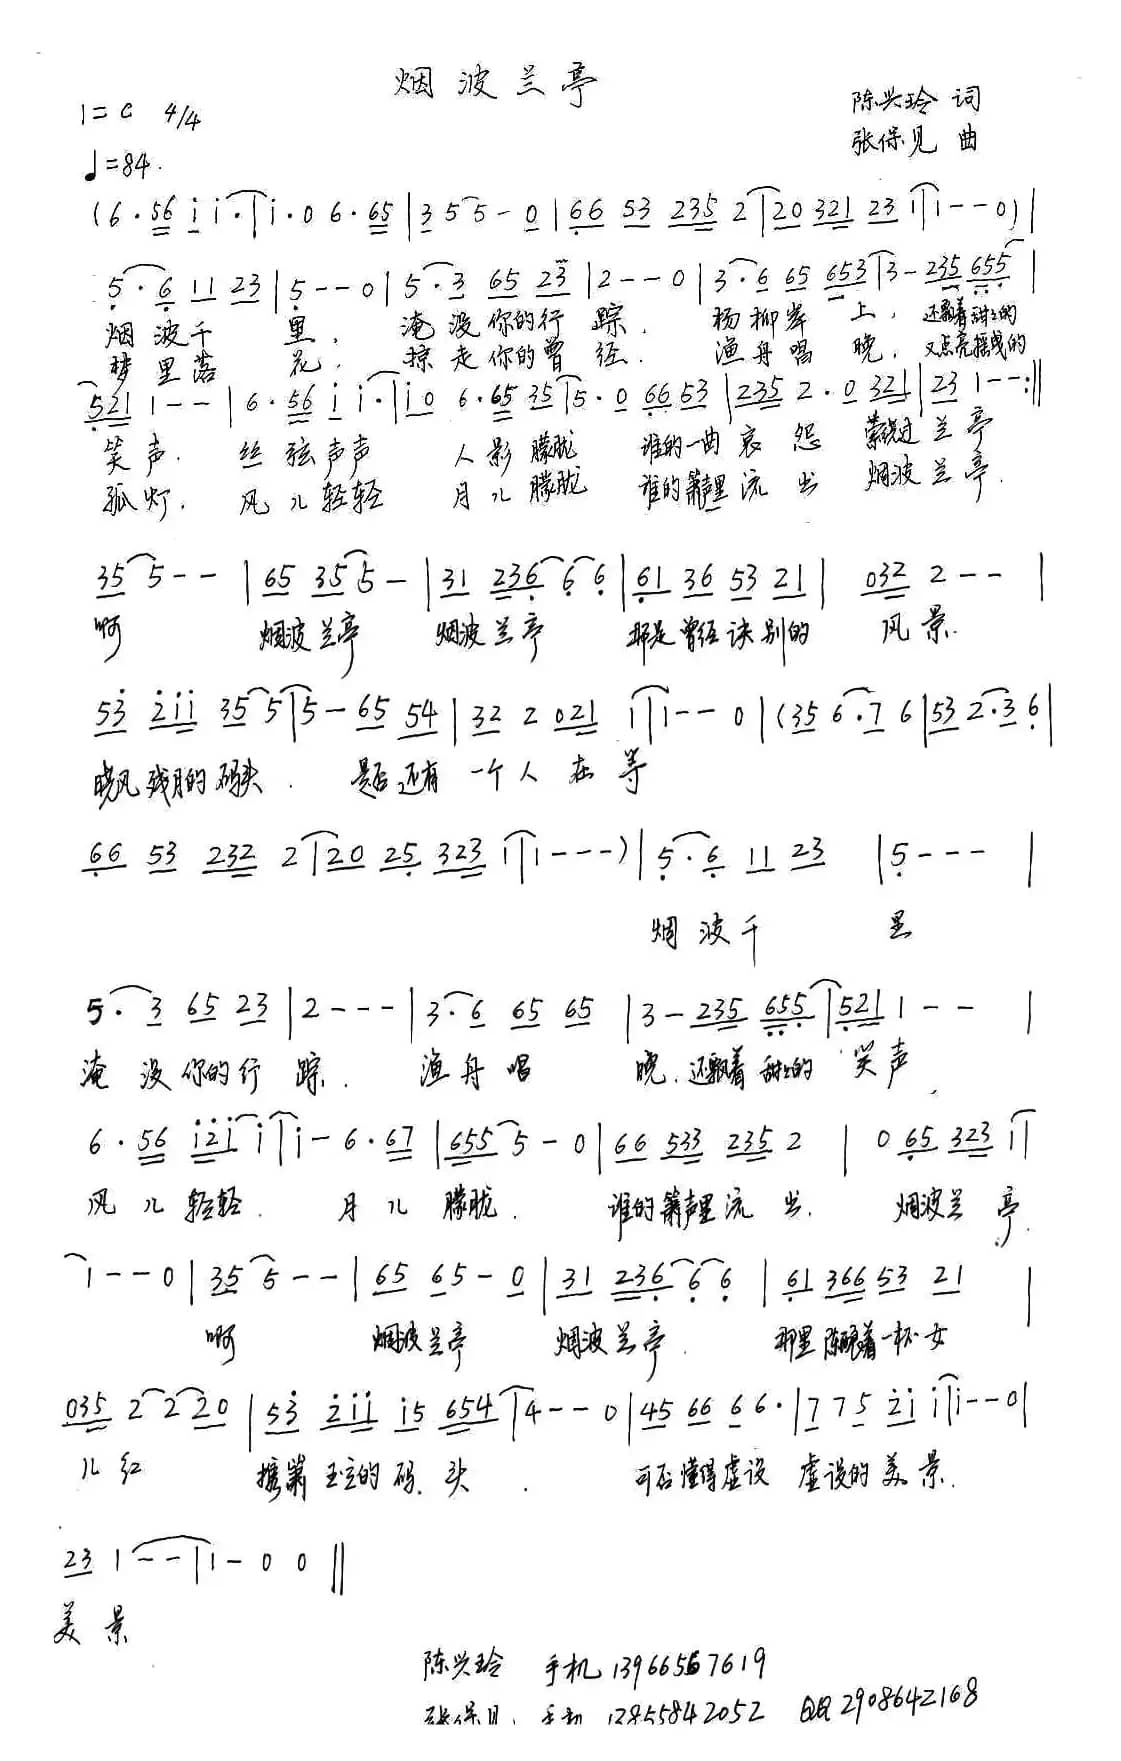 烟波兰亭
1=C 4/4
陈兴玲 词
♩=84.
张保见 曲
(6·56 i i·|i·0 6·65|3 5 5-0|66 53 235 2|20 321 23 1|1--0)|
5·6 11 23|5--0|5·3 65 23|2--0|3·6 65 653|3-235 655|
烟波千里, 淹没你的行踪. 杨柳岸上, 还飘着甜甜的
梦里落花, 掠走你的曾经. 渔舟唱晓, 又点亮摇曳的
521 1--|6·56 i i·|i0 6·65 35|5·0 66 53|235 2·0 321|23 1--:‖
笑声. 丝弦声声 人影朦胧 谁的一曲哀怨 萦绕过兰亭
孤灯. 风儿轻轻 月儿朦胧 谁的箫声里流出 烟波兰亭.
35 5--|65 35 5-|31 236 6 6|61 36 53 21|032 2--|
啊 烟波兰亭 烟波兰亭 那是曾经诀别的 风景.
53 2ii 35 5|5-65 54|32 2 021 1|1--0|(35 6·7 6|53 2·3 6|
晓风残月的码头. 是否还有一个人在等
66 53 232 2|20 25 323 1|1---)|5·6 11 23|5---|
烟波千里
5·3 65 23|2---|3·6 65 65|3-235 655|521 1--|
淹没你的行踪. 渔舟唱晓. 还飘着甜甜的笑声
6·56 i2i i|i-6·67|655 5-0|66 533 235 2|0 65 323 1|
风儿轻轻. 月儿朦胧. 谁的箫声里流出. 烟波兰亭.
1--0|35 5--|65 65-0|31 236 6 6|61 366 53 21|
啊 烟波兰亭 烟波兰亭. 那里陈酿着一杯女
035 2 2 20|53 2ii i5 654|4--0|45 66 6 6·|7 7 5 2i i|i--0|
儿红 携箫玉立的码头. 可否懂得虚设 虚设的美景.
23 1--|1-0 0‖
美景
陈兴玲 手机 13966567619
张保见: 手机 13855842052 QQ2908642168